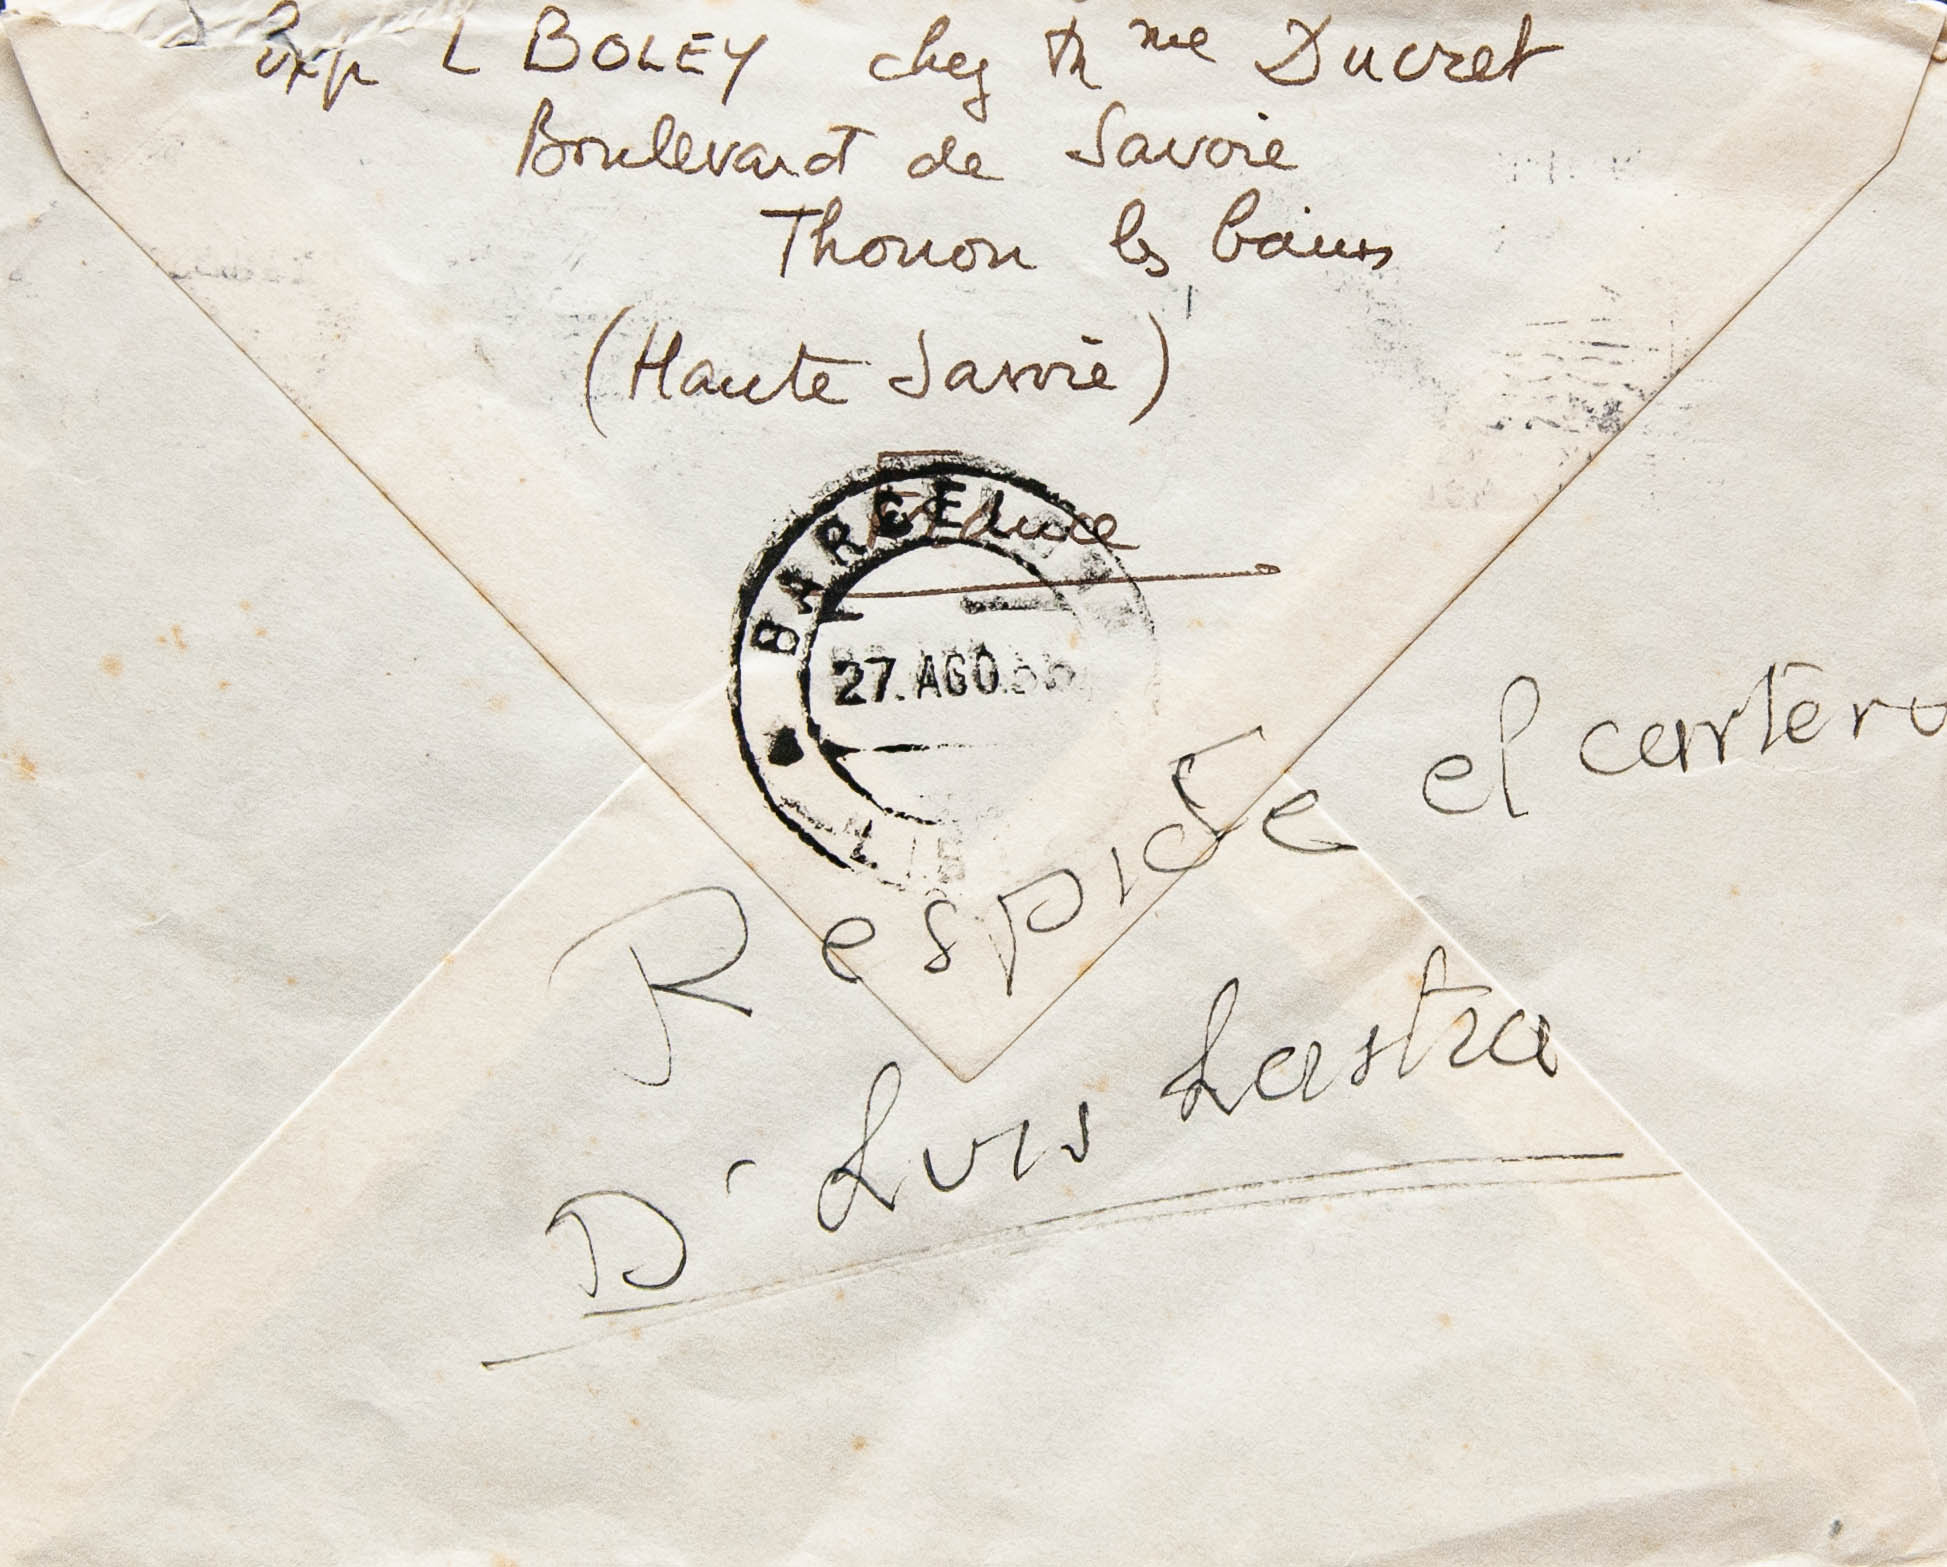 Exp L BOLEY chez Mme Ducret
Boulevard de Savoie
Thonon les bains
(Haute Savoie)
France
BARCEL
27. AGO.
Respide el cartero
D' Luis Lastra